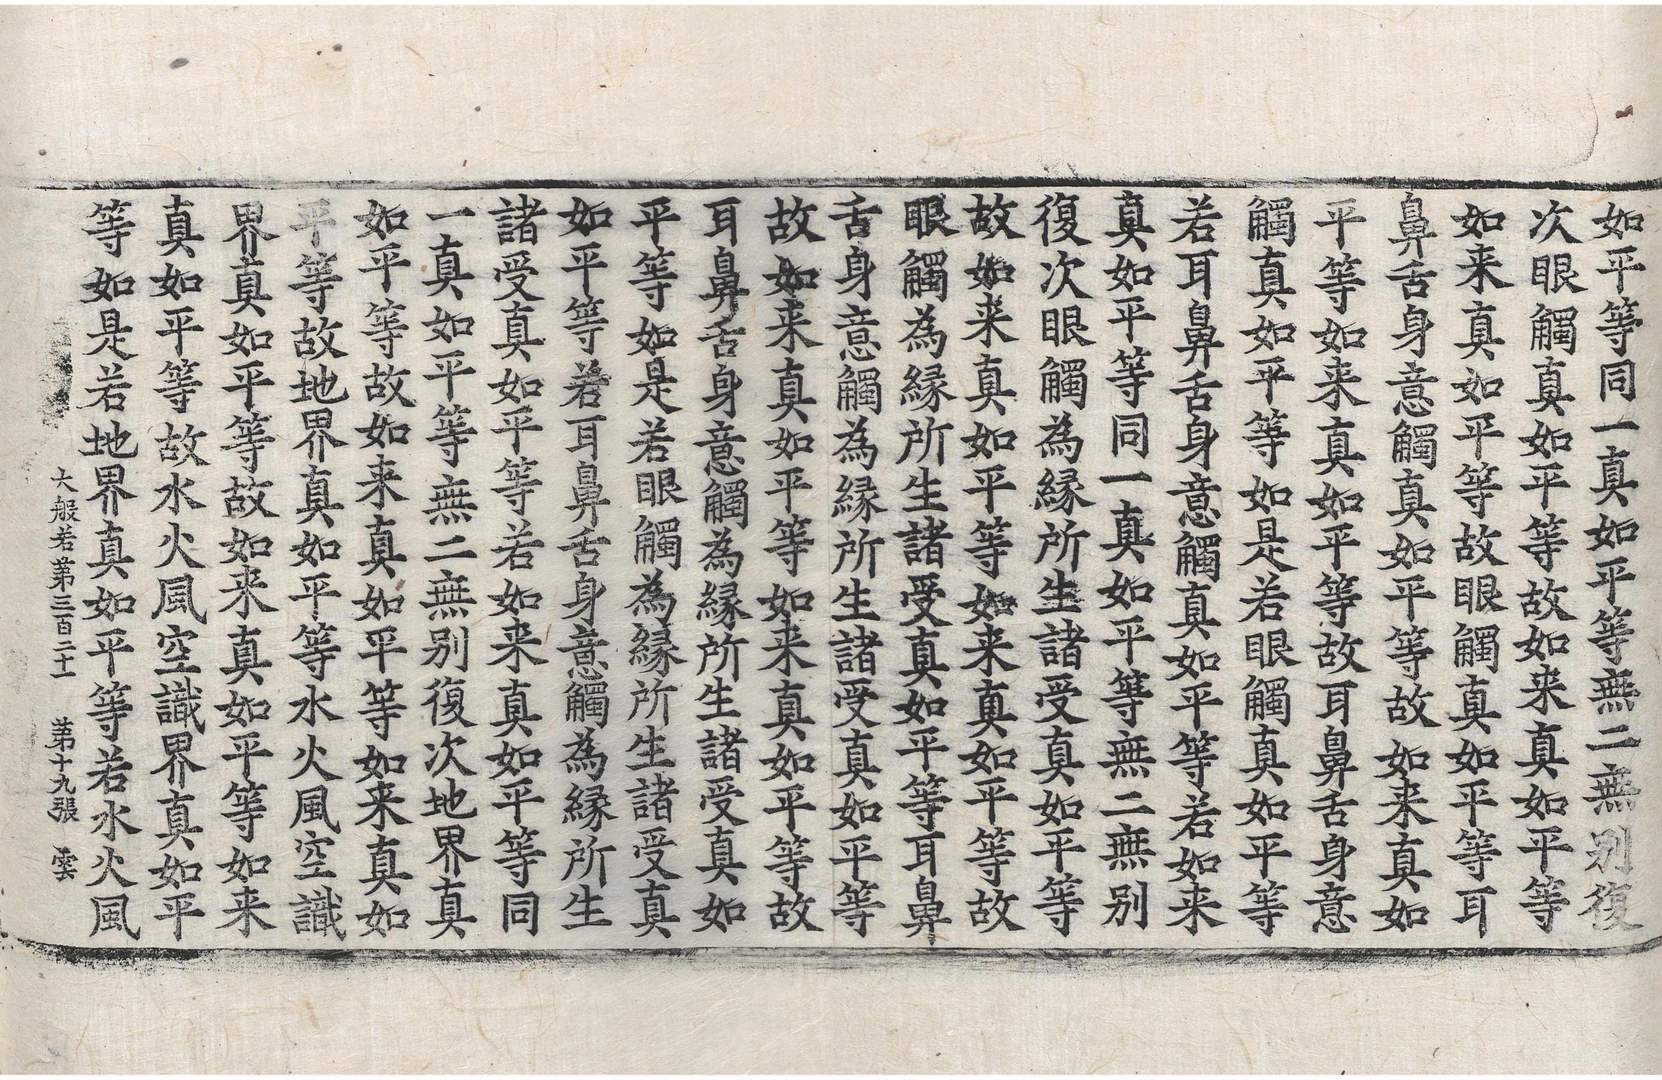 如平等同一真如平等無二無别復
次眼觸真如平等故如来真如平等
如来真如平等故眼觸真如平等耳
鼻舌身意觸真如平等故如来真如
平等如来真如平等故耳鼻舌身意
觸真如平等如是若眼觸真如平等
若耳鼻舌身意觸真如平等若如来
真如平等同一真如平等無二無别
復次眼觸為縁所生諸受真如平等
故如来真如平等如来真如平等故
眼觸為縁所生諸受真如平等耳鼻
舌身意觸為縁所生諸受真如平等
故如来真如平等如来真如平等故
耳鼻舌身意觸為縁所生諸受真如
平等如是若眼觸為縁所生諸受真
如平等若耳鼻舌身意觸為縁所生
諸受真如平等若如来真如平等同
一真如平等無二無别復次地界真
如平等故如来真如平等如来真如
平等故地界真如平等水火風空識
界真如平等故如来真如平等如来
真如平等故水火風空識界真如平
等如是若地界真如平等若水火風
大般若第三百二十一 第十九張 雲